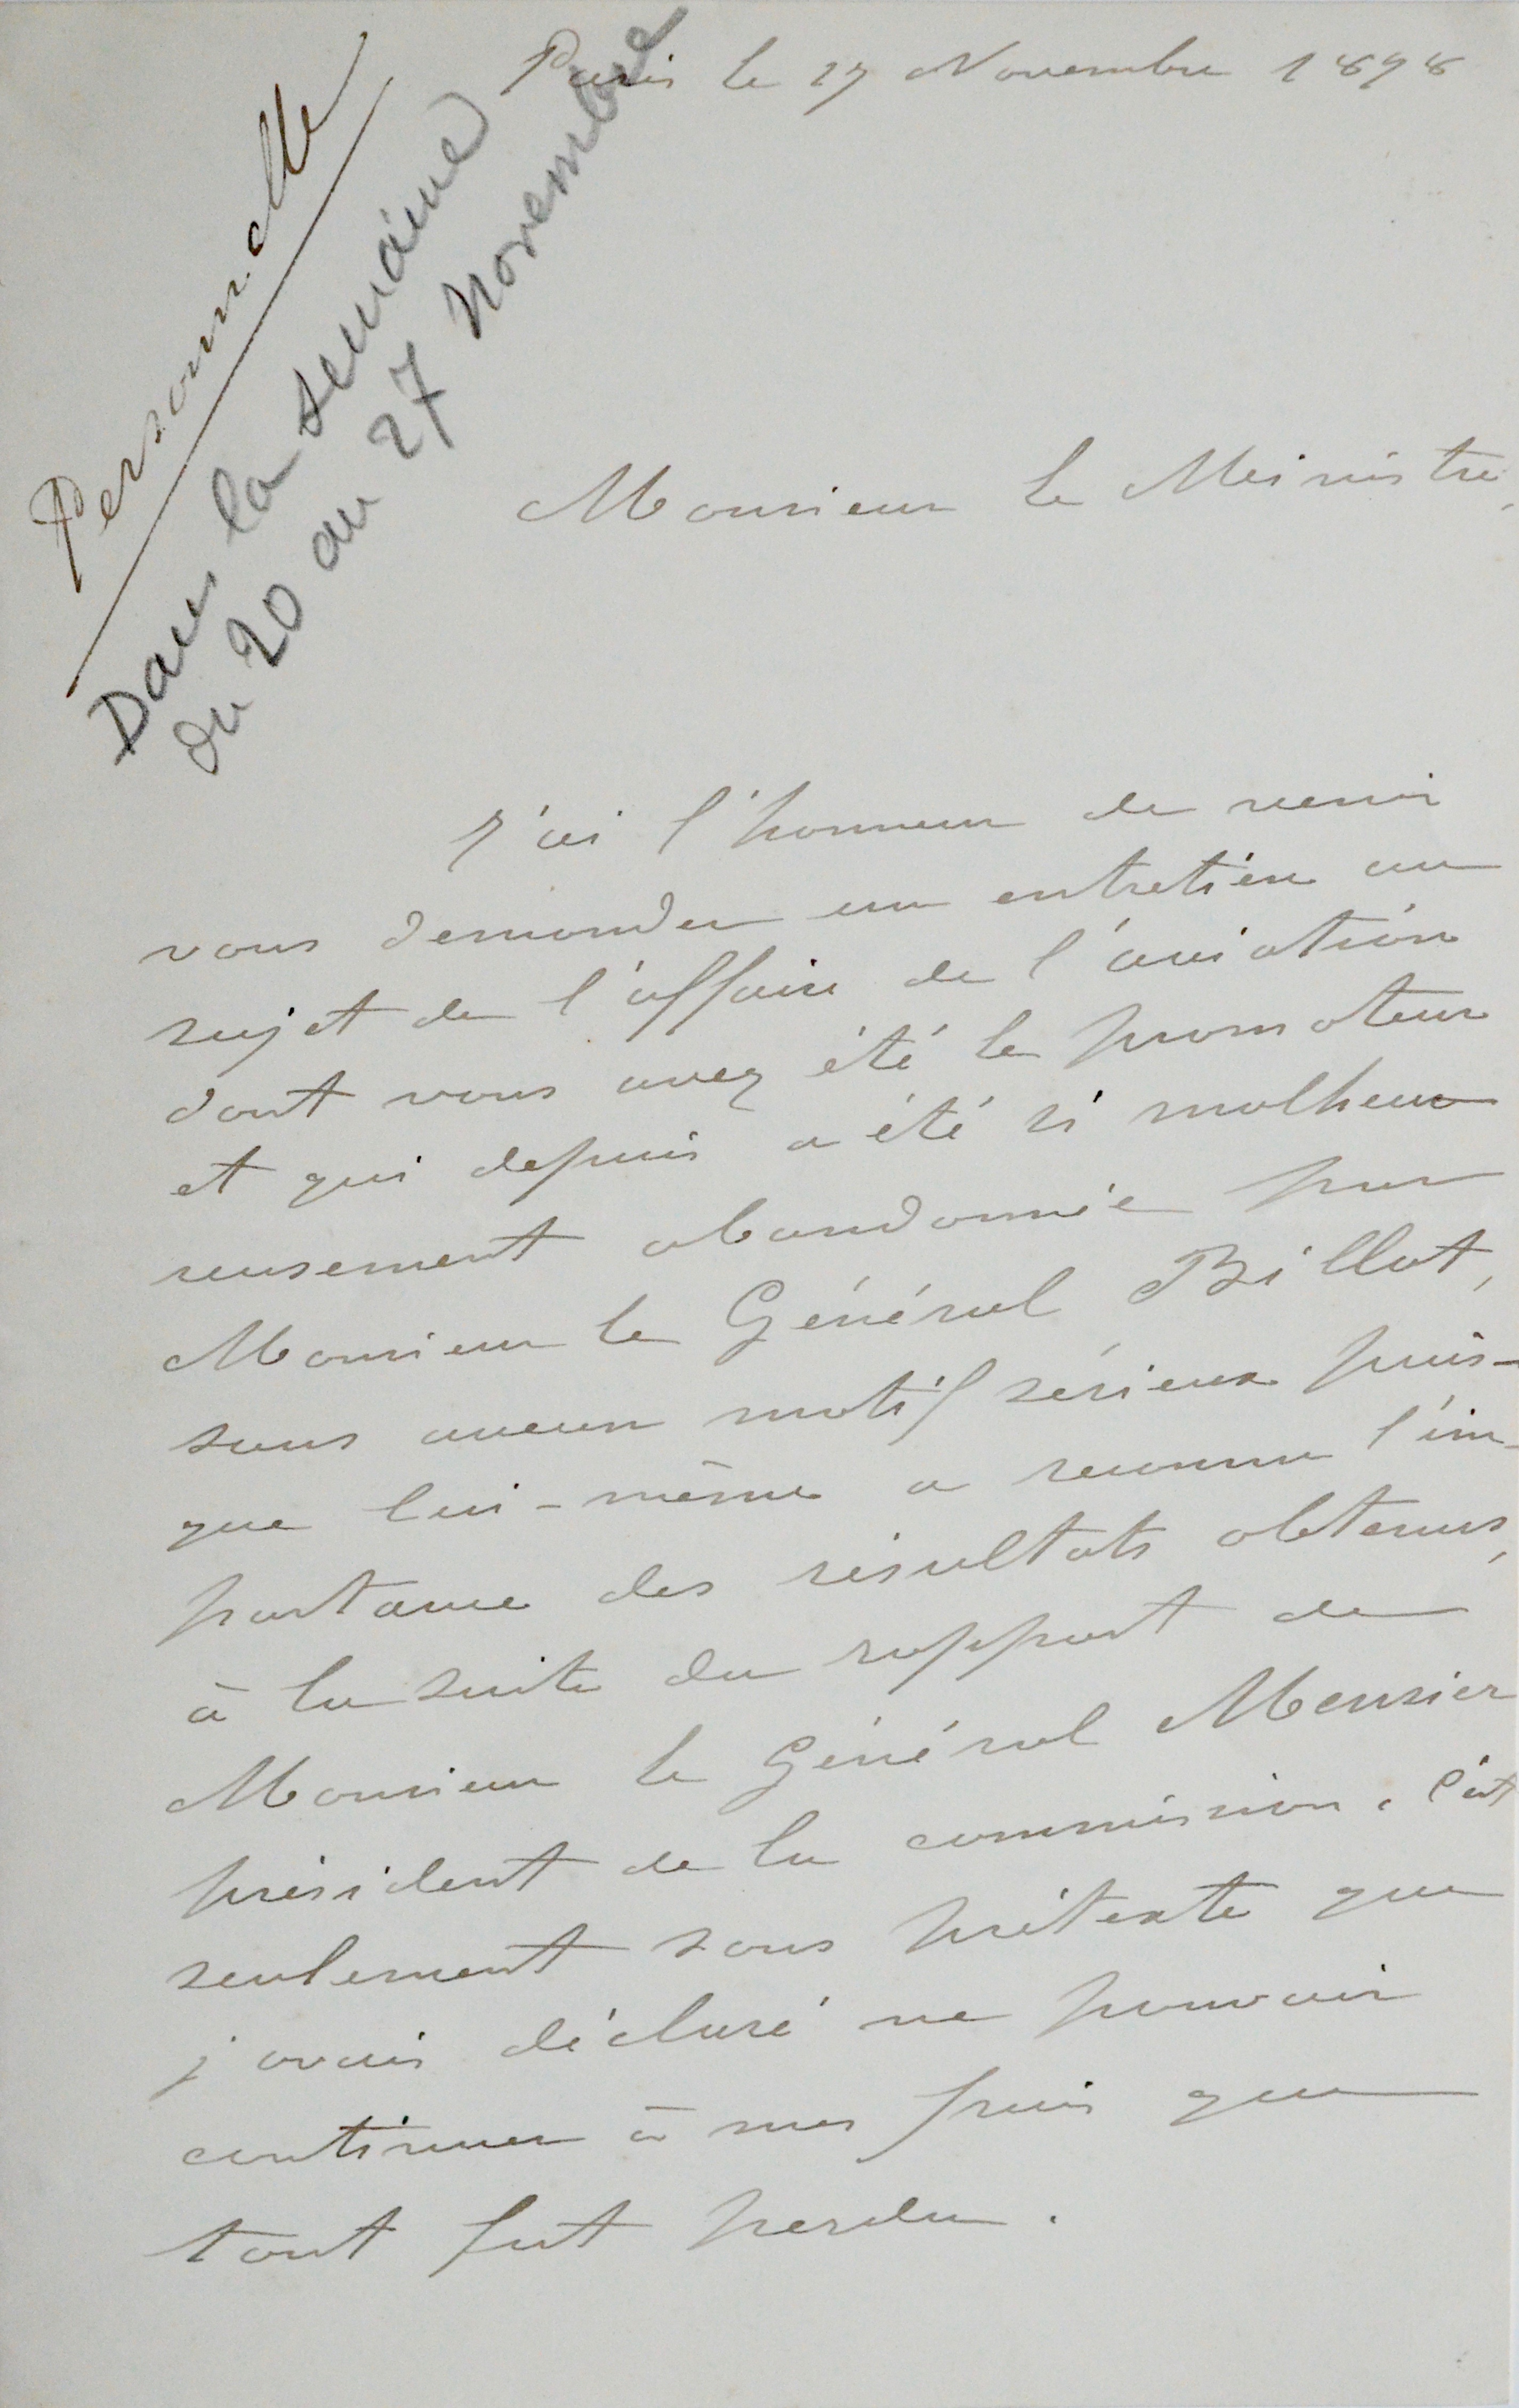 Paris le 17 Novembre 1898
Personnelle
Dans la semaine
du 20 au 27 novembre
Monsieur le Ministre,
J'ai l'honneur de venir
vous demander un entretien au
sujet de l'affaire de l'aviation
dont vous avez été le promoteur
et qui depuis a été si malheu
reusement abandonnée par
Monsieur le Général Billot,
sans aucun motif sérieux puis-
que lui-même a reconnu l'im-
portance des résultats obtenus,
à la suite du rapport de
Monsieur le Général Mensier
président de la commission. C'est
seulement sous prétexte que
j'avais déclaré ne pouvoir
continuer à mes frais que
tout fut perdu.